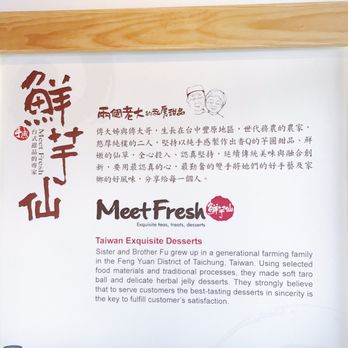 鮮芋仙
Meet Fresh
台式甜品的專家
兩個老大的私房甜品
傅大姊與傅大哥，生長在台中豐原地區，世代務農的農家，
憨厚純樸的二人，堅持以純手感製作出香Q的芋圓甜品，鮮
嫩的仙草，全心投入、認真堅持，延續傳統美味與融合創
新，要用最認真的心，最勤奮的雙手將她們的好手藝及家
鄉的好風味，分享給每一個人。
MeetFresh 鮮芋仙
Exquisite teas, treats, desserts
Taiwan Exquisite Desserts
Sister and Brother Fu grew up in a generational farming family
in the Feng Yuan District of Taichung, Taiwan. Using selected
food materials and traditional processes, they made soft taro
ball and delicate herbal jelly desserts. They strongly believe
that to serve customers the best-tasting desserts in sincerity is
the key to fulfill customer's satisfaction.